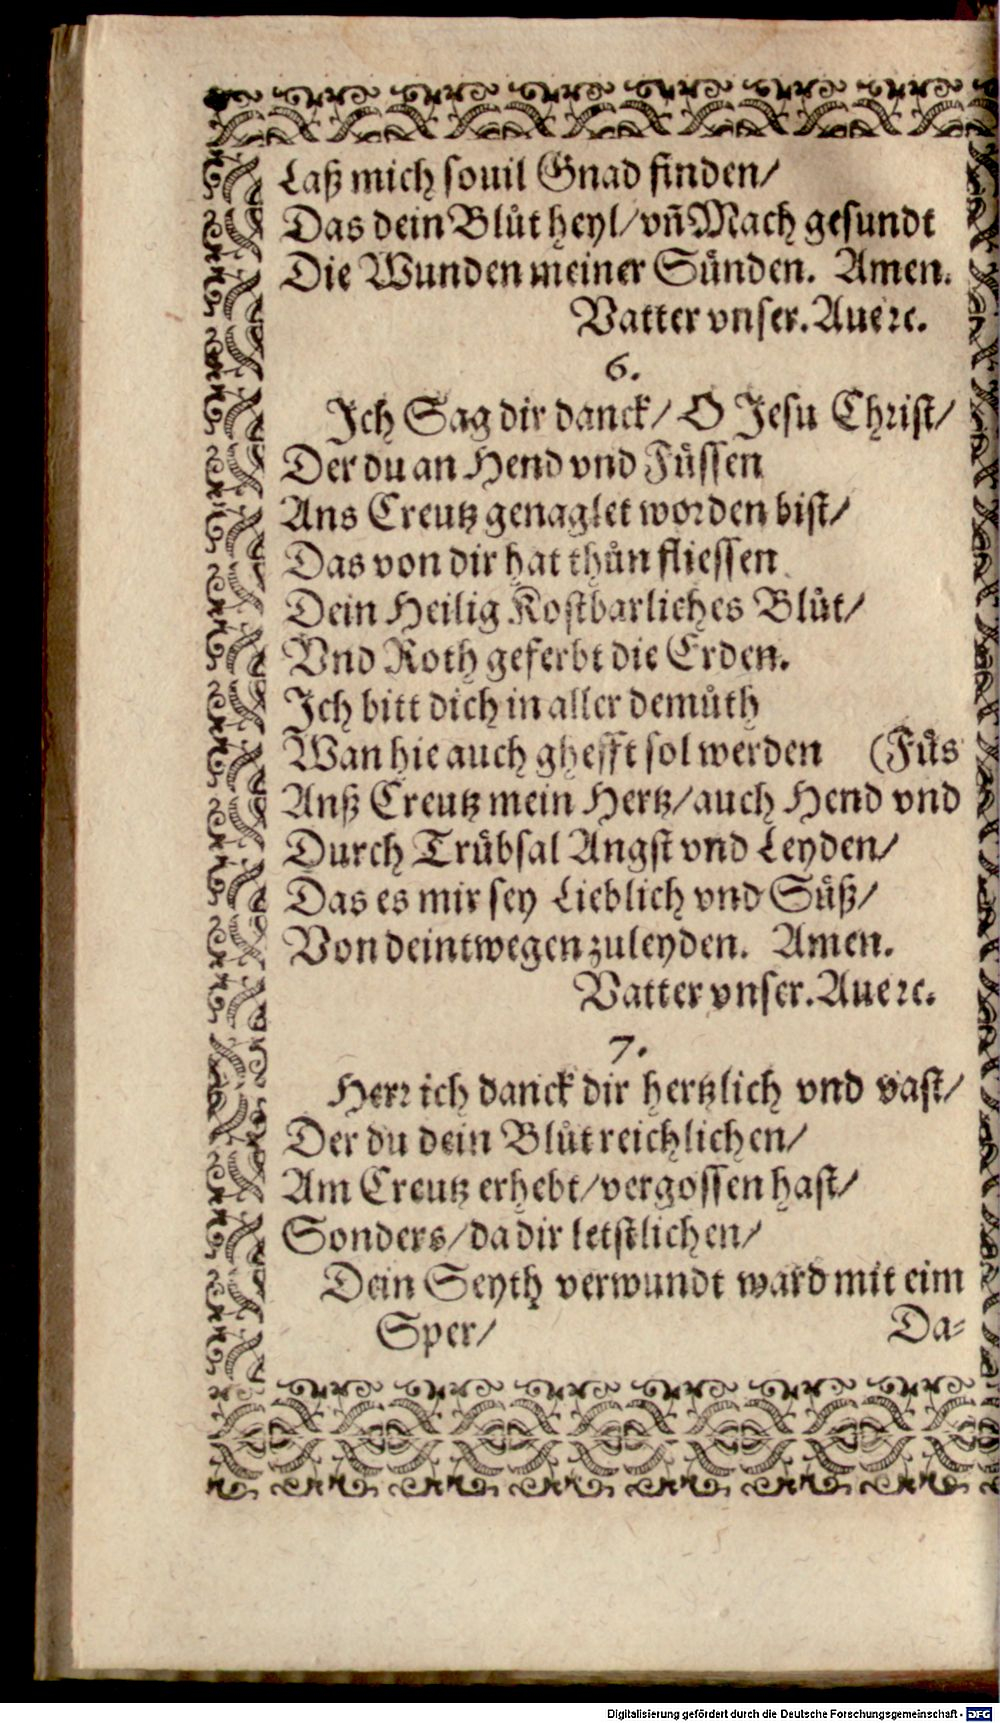 Laß mich souil Gnad finden/
Das dein Blůt heyl/ vn̄ Mach gesundt
Die Wunden meiner Sünden. Amen.
Vatter vnser. Aue ꝛc.
6.
Jch Sag dir danck/ O Jesu Christ/
Der du an Hend vnd Füssen
Ans Creutz genaglet worden bist/
Das von dir hat thůn fliessen
Dein Heilig Kostbarliches Blůt/
Vnd Roth geferbt die Erden.
Jch bitt dich in aller demůth
Wan hie auch ghefft sol werden (Fůs
Anß Creutz mein Hertz/ auch Hend vnd
Durch Trübsal Angst vnd Leyden/
Das es mir sey Lieblich vnd Süß/
Von deintwegen zuleyden. Amen.
Vatter vnser. Aue ꝛc.
7.
Herr ich danck dir hertzlich vnd vast/
Der du dein Blůt reichlichen/
Am Creutz erhebt/ vergossen hast/
Sonders/ da dir letstlichen/
Dein Seyth verwundt ward mit eim
Sper/ Da-
Digitalisierung gefördert durch die Deutsche Forschungsgemeinschaft - DFG